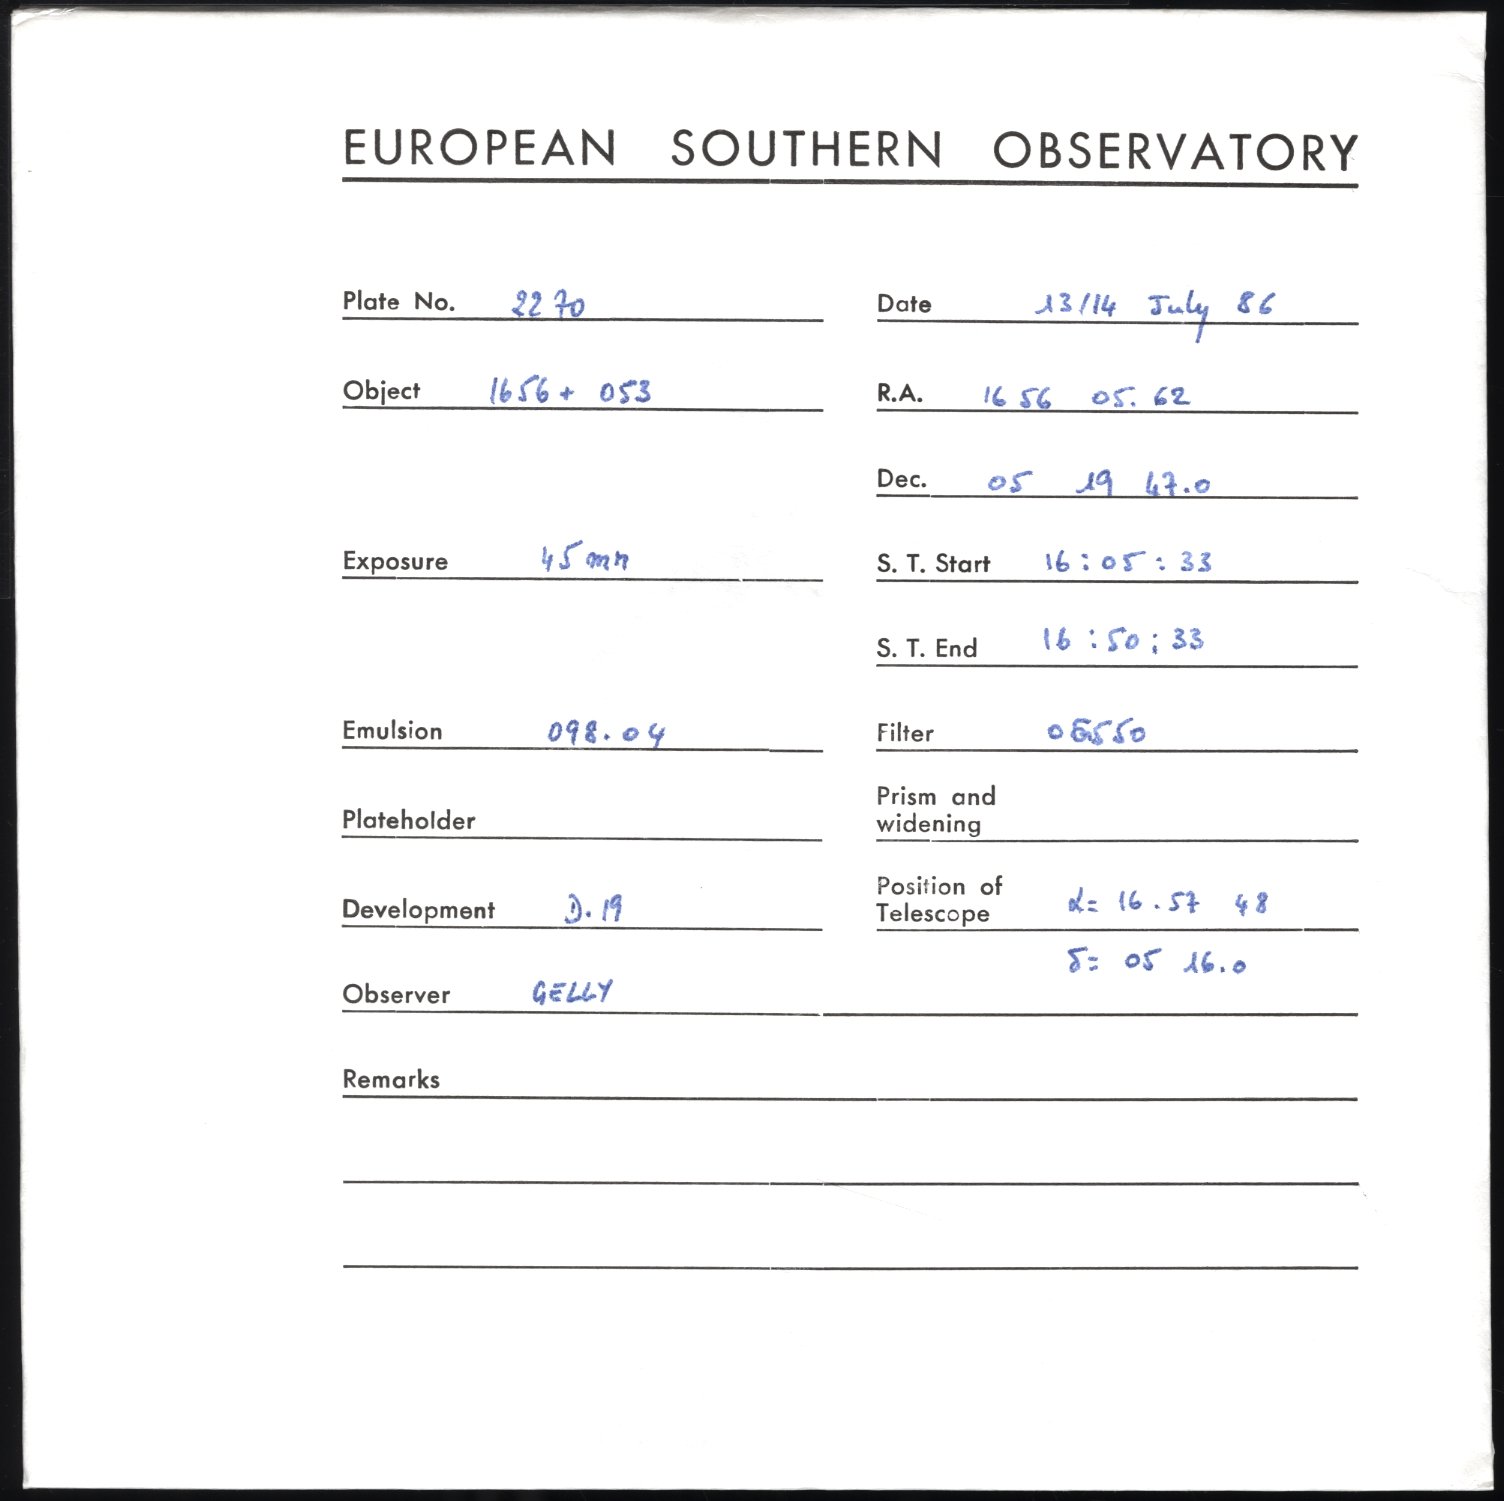 EUROPEAN SOUTHERN OBSERVATORY
Plate No. 2270 Date 13/14 July 86
Object 1656+ 053 R.A. 16 56 05.62
Dec. 05 19 47.0
Exposure 45 mn S. T. Start 16:05:33
S. T. End 16:50:33
Emulsion 098.04 Filter
Plateholder Prism and
widening
Development D.19 Position of
Telescope α= 16.57 48
δ= 05 16.0
Observer GELLY
Remarks